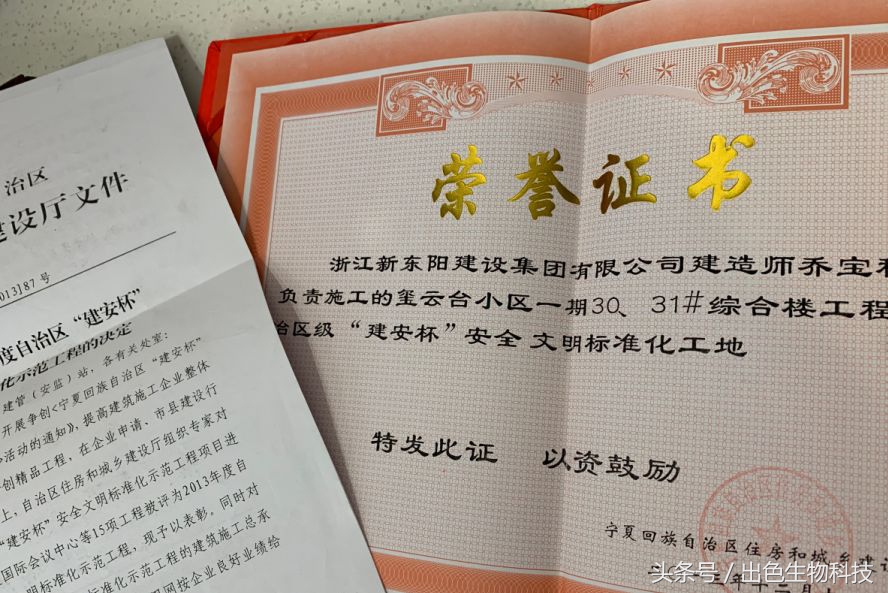 治区
建设厅文件
013〕87号
度自治区“建安杯”
化示范工程的决定
建管（安监）站，各有关处室：
开展争创<宁夏回族自治区“建安杯”
活动的通知》，提高建筑施工企业整体
创精品工程，在企业申请、市县建设行
上，自治区住房和城乡建设厅组织专家对
“建安杯”安全文明标准化示范工程项目进
国际会议中心等15项工程被评为2013年度自
明标准化示范工程，现予以表彰。同时对
标准化示范工程的建筑施工总承
网按企业良好业绩给
荣誉证书
浙江新东阳建设集团有限公司建造师乔宝
负责施工的玺云台小区一期30、31#综合楼工程
治区级“建安杯”安全文明标准化工地
特发此证 以资鼓励
宁夏回族自治区住房和城乡建设
三年十二月
头条号／出色生物科技